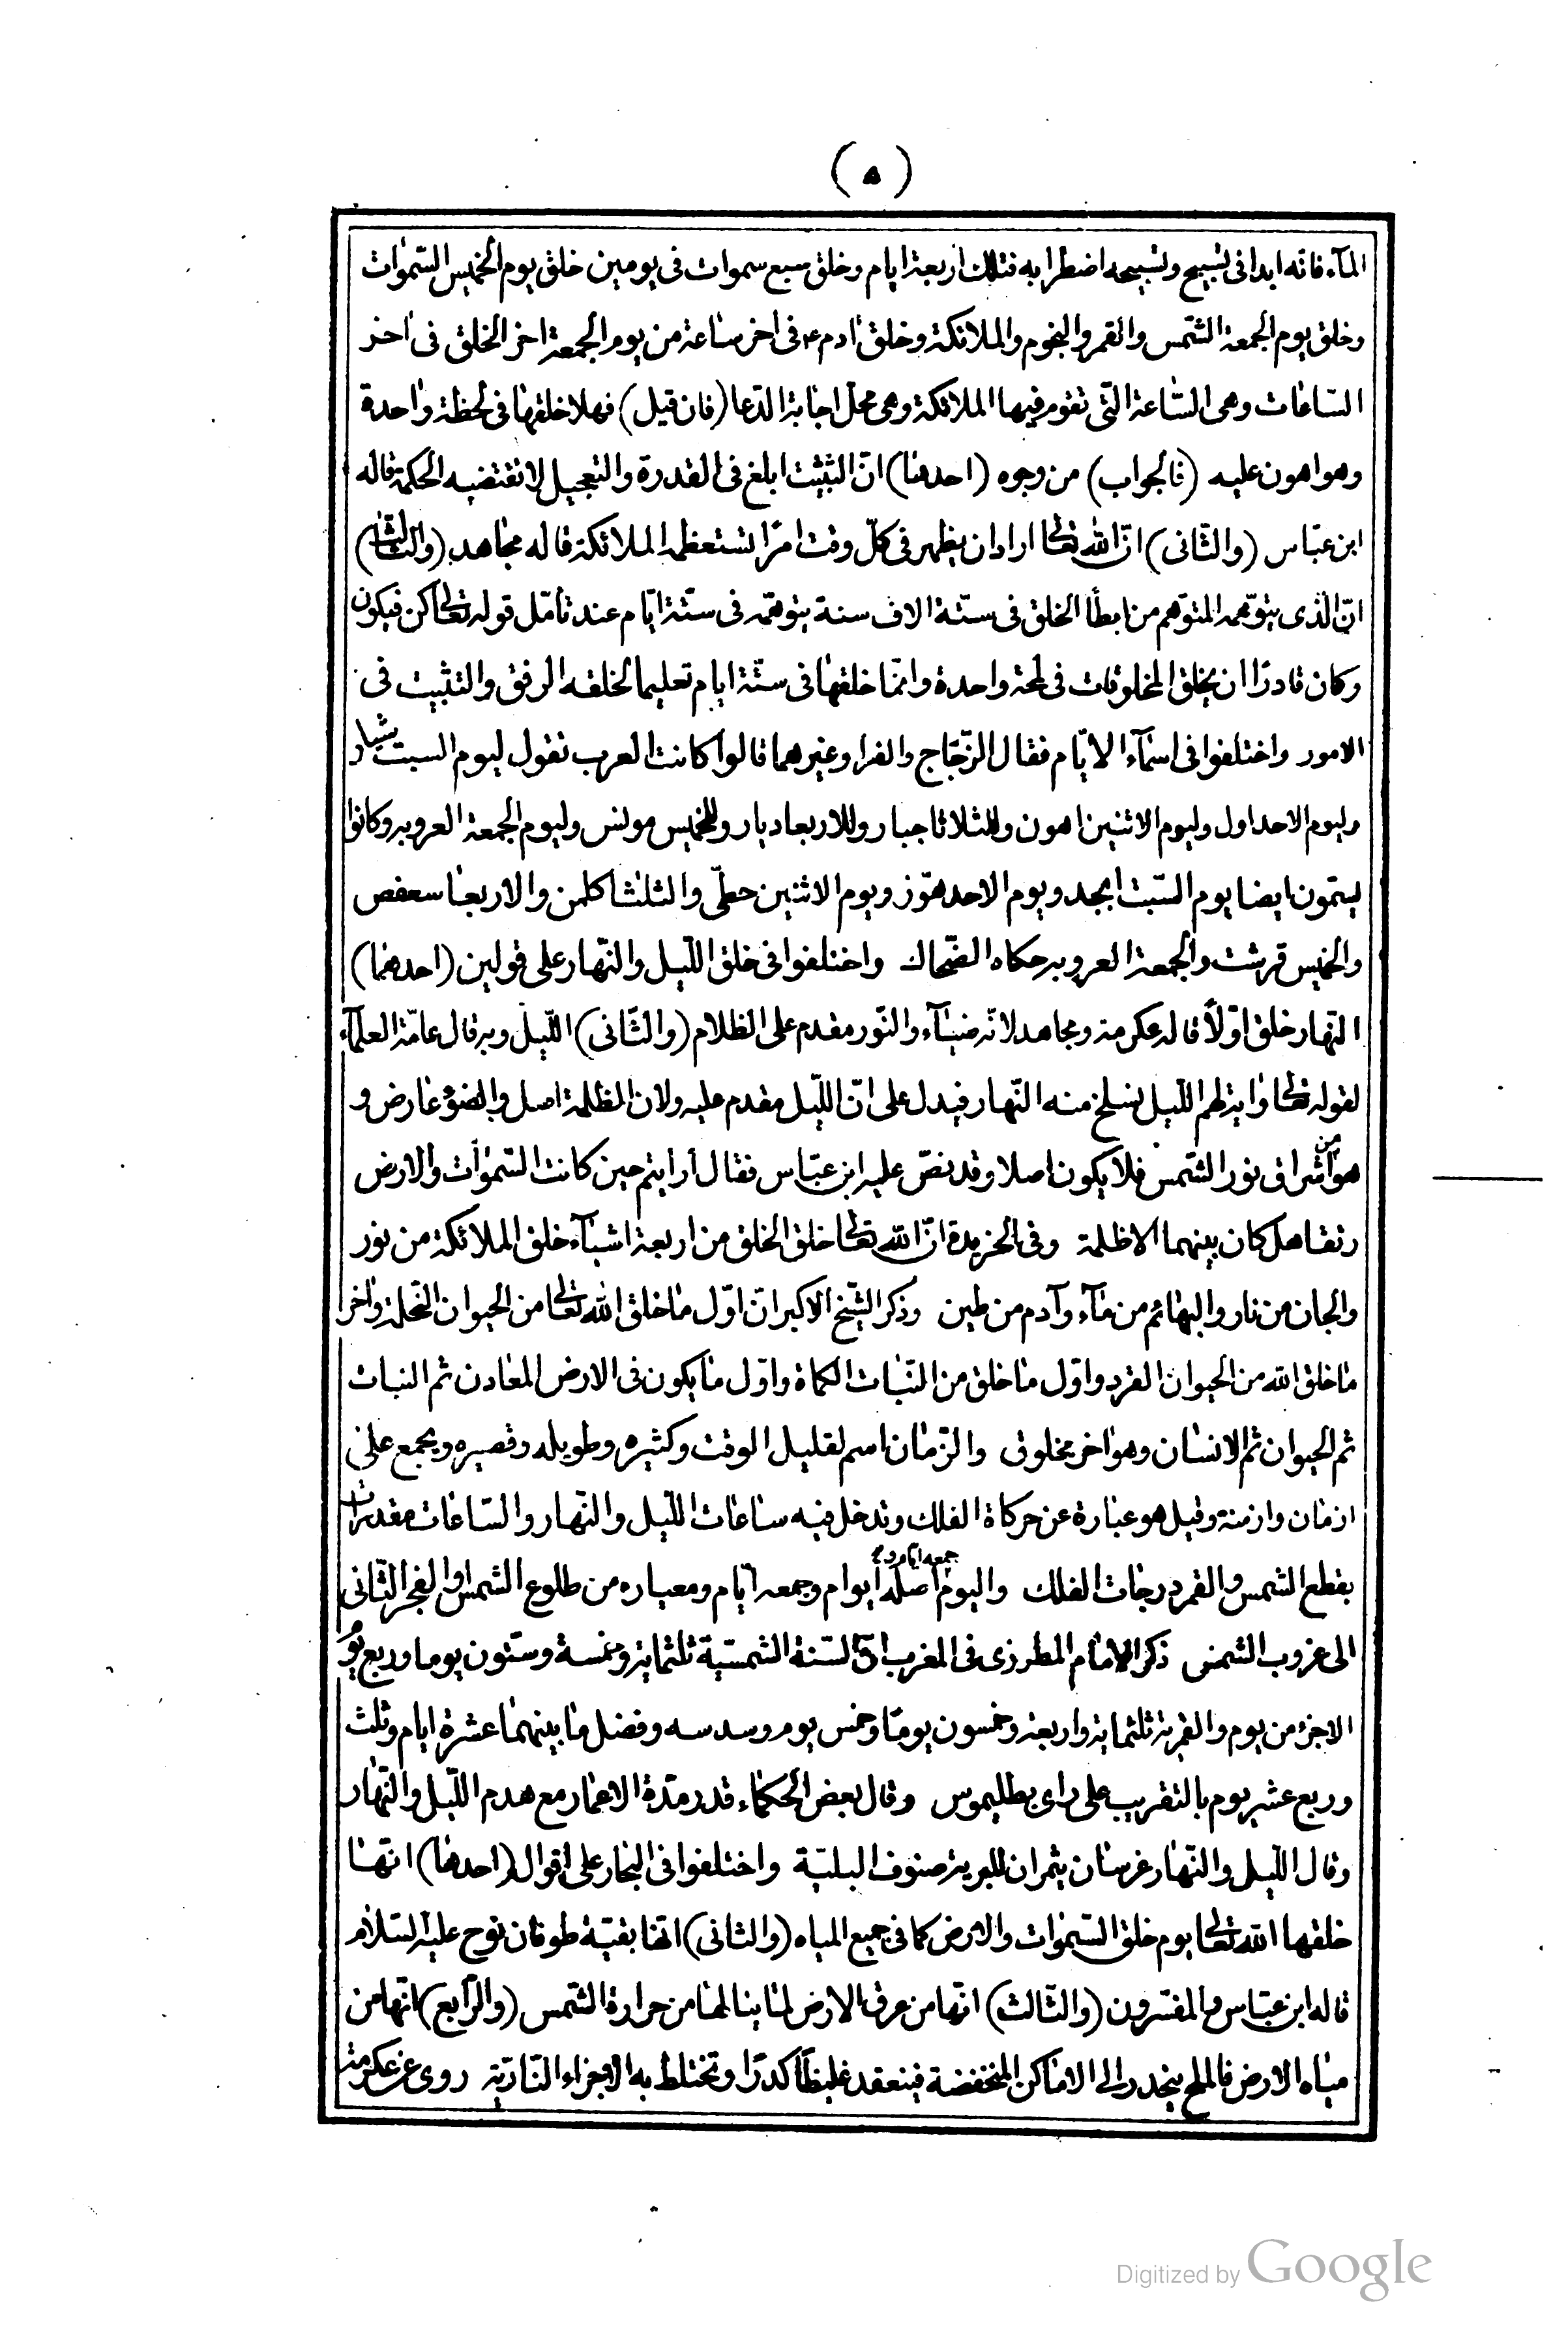 (٥)
المآء فانه ابدا فى تسبيح وتسبيحه اضطرابه فتلك اربعة ايام وخلق سبع سموات فى يومين خلق يوم الخميس السّموات
وخلق يوم الجمعة الشّمس والقمر والنجوم والملائكة وخلق ادم ع م فى اخر ساعة من يوم الجمعة اخر الخلق فى اخر
السّاعات وهى السّاعة التى تقوم فيها الملائكة وهى محل اجابة الدّعا (فان قيل) فهلا خلقها فى لحظة واحدة
وهو اهون عليه (فالجواب) من وجوه (احدها) انّ التثبّت ابلغ فى القدرة والتعجيل لا تقتضيه الحكمة قاله
ابن عبّاس (والثّانى) انّ الله تعالى اراد ان يظهر فى كلّ وقت امرًا تستعظمه الملائكة قاله مجاهد (والثالث)
انّ الّذى يتوهّمه المتوهم من ابطأ الخلق فى ستّة الاف سنة يتوهّمه فى ستّة ايّام عند تأمّل قوله تعالى كن فيكون
وكان قادرًا ان يخلق المخلوقات فى لمحة واحدة وانّما خلقها فى ستّة ايام تعليما لخلقه الرفق والتثبّت فى
الامور واختلفوا فى اسمآء الايّام فقال الزّجّاج والفرا وغيرهما قالوا كانت العرب تقول ليوم السبت شيار
وليوم الاحد اول وليوم الاثنين اهون وللثلاثا جبار وللاربعا ديار وللخميس مونس وليوم الجمعة العروبه وكانوا
يسمّون ايضا يوم السّبت ابجد ويوم الاحد هوّز ويوم الاثنين حطّى والثلثا كلمن والاربعا سعفص
والخميس قرشت والجمعة العروبه حكاه الضّحاك واختلفوا فى خلق اللّيل والنّهار على قولين (احدهما)
النّهار خلق اوّلاً قاله عكرمة ومجاهد لانّه ضيآء والنّور مقدم على الظلام (والثّانى) اللّيل وبه قال عامّة العلمآء
لقوله تعالى واية لهم اللّيل نسلخ منه النّهار فيدل على انّ اللّيل مقدم عليه ولان الظلمة اصل والضوء عارض و
هو من اشراق نور الشّمس فلا يكون اصلا وقد نصّ عليه ابن عبّاس فقال ارايتم حين كانت السّموات والارض
رتقا هل كان بينهما الا ظلمة وفى الخريدة انّ الله تعالى خلق الخلق من اربعة اشيآء خلق الملائكة من نور
والجان من نار والبهائم من مآء وآدم من طين وذكر الشّيخ الاكبر انّ اوّل ما خلق الله تعالى من الحيوان النّحلة واخر
ما خلق الله من الحيوان القرد واوّل ما خلق من النّبات الكماة واوّل ما يكون فى الارض المعادن ثم النبات
ثم الحيوان ثم الانسان وهو اخر مخلوق والزّمان اسم لقليل الوقت وكثيره وطويله وقصيره ويجمع على
ازمان وازمنة وقيل هو عبارة عن حركاة الفلك وتدخل فيه ساعات اللّيل والنّهار والسّاعات مقدرات
بقطع الشمس والقمر درجات الفلك واليوم اصله ايوام وجمعه ايّام ومعياره من طلوع الشمس او الفجر الثّانى
الى غروب الشمس ذكر الامام المطرزى فى المغرب انّ السّنة الشمسيّة ثلثماية وخمسة وستّون يوما وربع يوم
الا جزء من يوم والقمرية ثلثماية واربعة وخمسون يومًا وخمس يوم وسدسه وفضل ما بينهما عشرة ايام وثلث
وربع عشر يوم بالتقريب على راى بطليموس وقال بعض الحكماء قدر مدّة الاعمار مع هدم اللّيل والنّهار
وقال اللّيل والنّهار غرسان يثمران للبرية صنوف البليّة واختلفوا فى البحار على اقوال (احدها) انّها
خلقها الله تعالى يوم خلق السّموات والارض كما فى جميع المياه (والثانى) انّها بقيّة طوفان نوح عليه السّلام
قاله ابن عبّاس والمفسّرون (والثّالث) انّها من عرق الارض لما ينالها من حرارة الشّمس (والرّابع) انّها من
مياه الارض فالملح ينحدر الى الاماكن المنخفضة فينعقد غليظًا كدرًا وتختلط به الاجزاء النّاريّة روى عن عكرمة
Digitized by Google